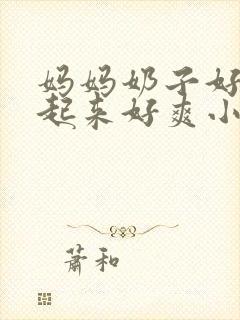 妈妈奶子好
起来好爽小
蕭和